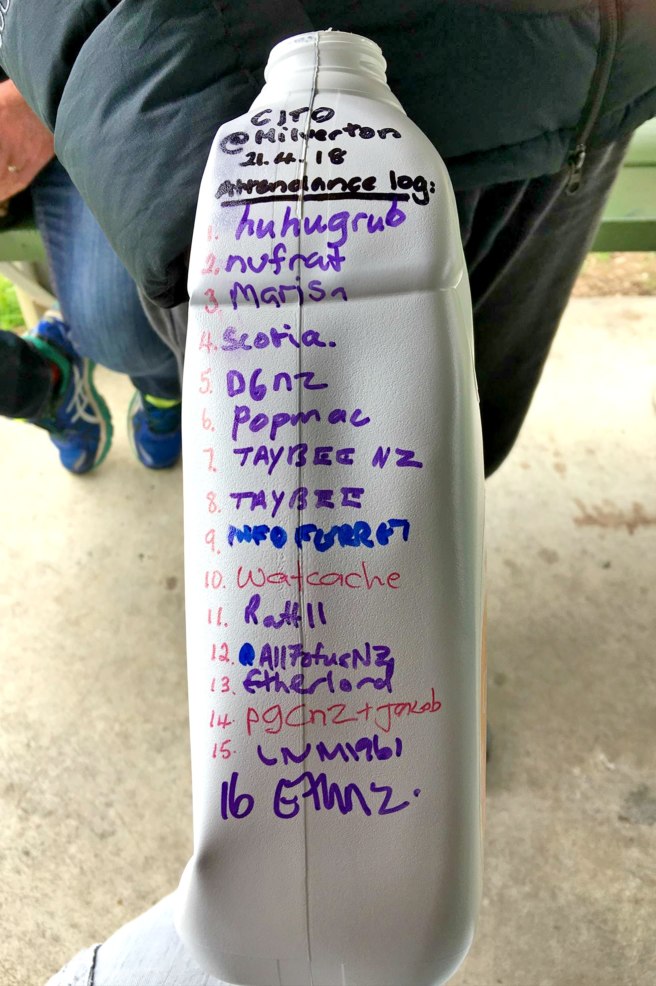 CITO
@Milverton
21.4.18
Attendance log:
1. huhugrub
2. nufrat
3 Marisa
4. Scotia.
5. D6nz
6. Popmac
7. TAYBEE NZ
8. TAYBEE
9. INFO FERRET
10. Watcache
11. Rattll
12. @All7ofusNZ
13. Etherlord
14. pgcnz + Jakob
15. LNM1961
16